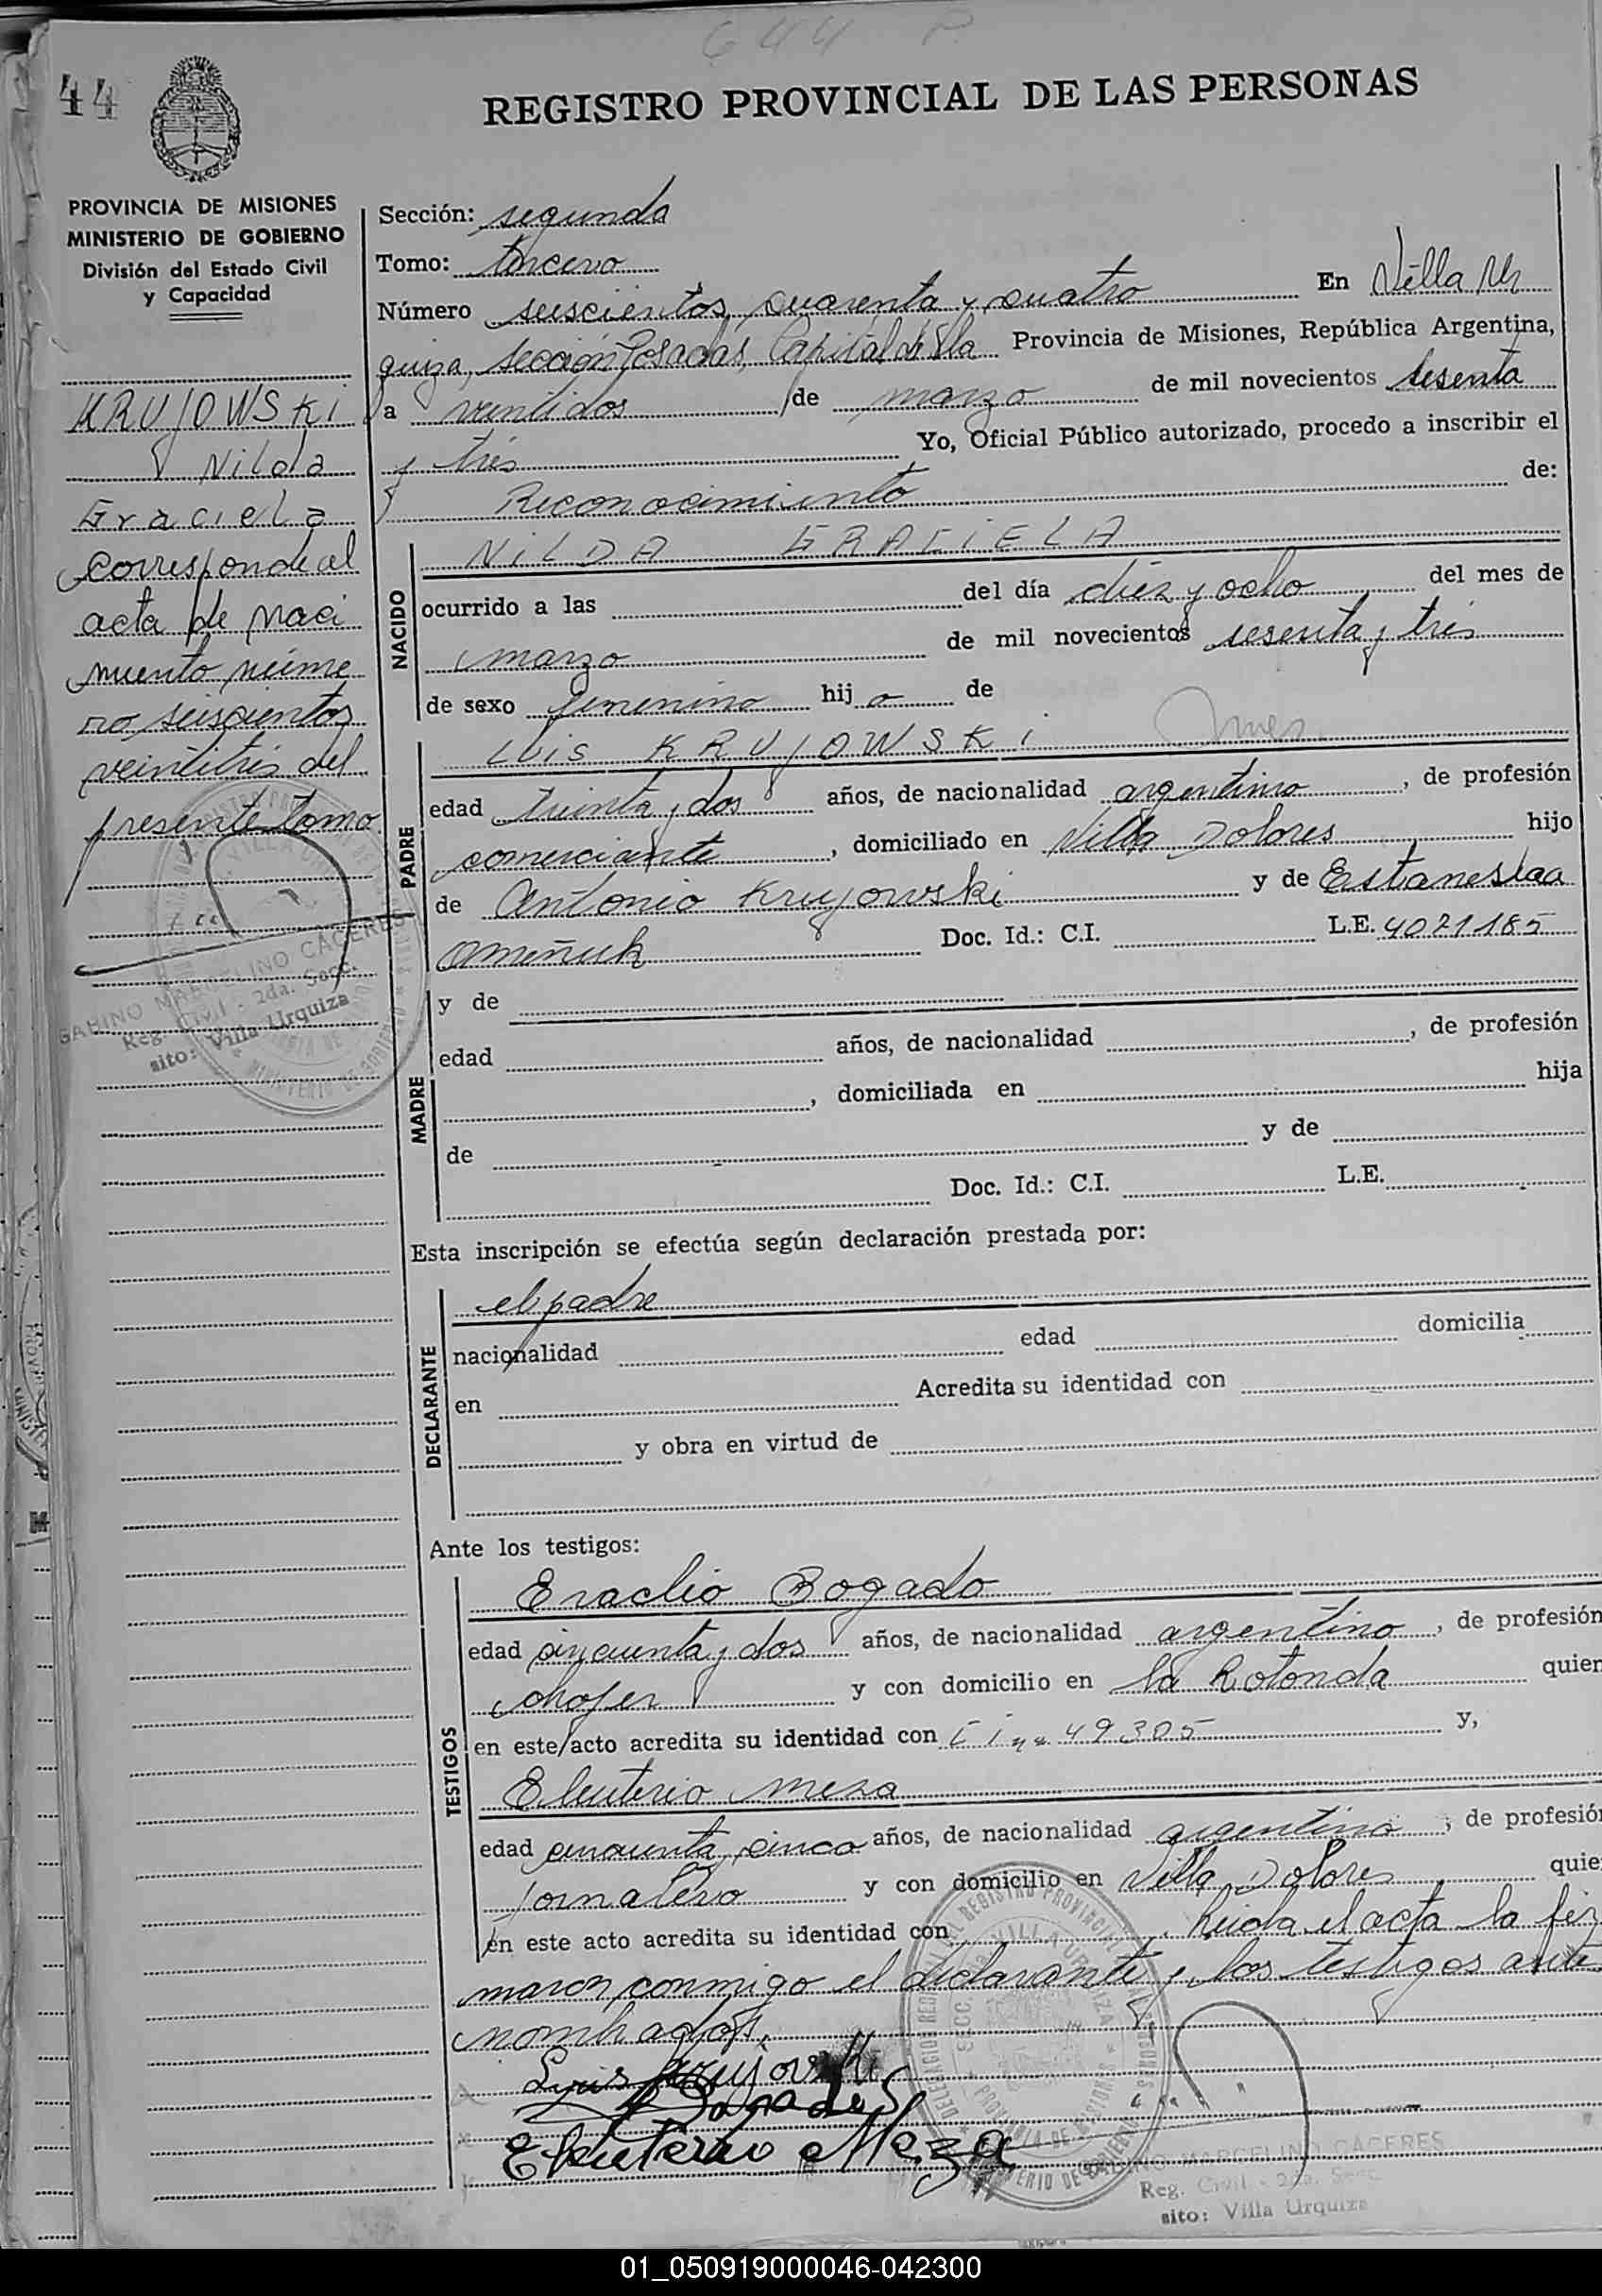 644
44
REGISTRO PROVINCIAL DE LAS PERSONAS
PROVINCIA DE MISIONES
MINISTERIO DE GOBIERNO
División del Estado Civil
y Capacidad
KRUJOWSKI
Nilda
Graciela
Corresponde al
acta de naci
miento núme
ro seiscientos
veintitrés del
presente tomo
GABINO MARCELINO CACERES
Reg. Civil - 2da. Secc.
sito: Villa Urquiza
Sección: segunda
Tomo: tercero
Número seiscientos, cuarenta y cuatro En Villa Ur
quiza, sección Posadas, Capital de la Provincia de Misiones, República Argentina,
a veintidos de marzo de mil novecientos sesenta
y tres Yo, Oficial Público autorizado, procedo a inscribir el
Reconocimiento de:
NACIDO
NILDA GRACIELA
ocurrido a las del día diez y ocho del mes de
marzo de mil novecientos sesenta y tres
de sexo femenino hij a de
PADRE
LUIS KRUJOWSKI
edad treinta y dos años, de nacionalidad argentino, de profesión
comerciante, domiciliado en Villa Dolores hijo
de Antonio Krujowski y de Estaneslaa
Omeñuk Doc. Id.: C.I. L.E. 4021185
MADRE
y de
edad años, de nacionalidad , de profesión
, domiciliada en hija
de y de
Doc. Id.: C.I. L.E.
Esta inscripción se efectúa según declaración prestada por:
DECLARANTE
el padre
nacionalidad edad domicilia
en Acredita su identidad con
y obra en virtud de
Ante los testigos:
TESTIGOS
Eraclio Bogado
edad cincuenta y dos años, de nacionalidad argentino, de profesión
chofer y con domicilio en la Rotonda quien
en este acto acredita su identidad con C I nº 49305 y,
Eleuterio Meza
edad cincuenta y cinco años, de nacionalidad argentino, de profesión
jornalero y con domicilio en Villa Dolores quie
en este acto acredita su identidad con . Leida el acta la fir
maron conmigo el declarante y los testigos ante
nombrados.
Luis Krujowski
Bogado
Eleuterio Meza
MARCELINO CACERES
Reg. Civil - 2da. Secc.
sito: Villa Urquiza
01_050919000046-042300